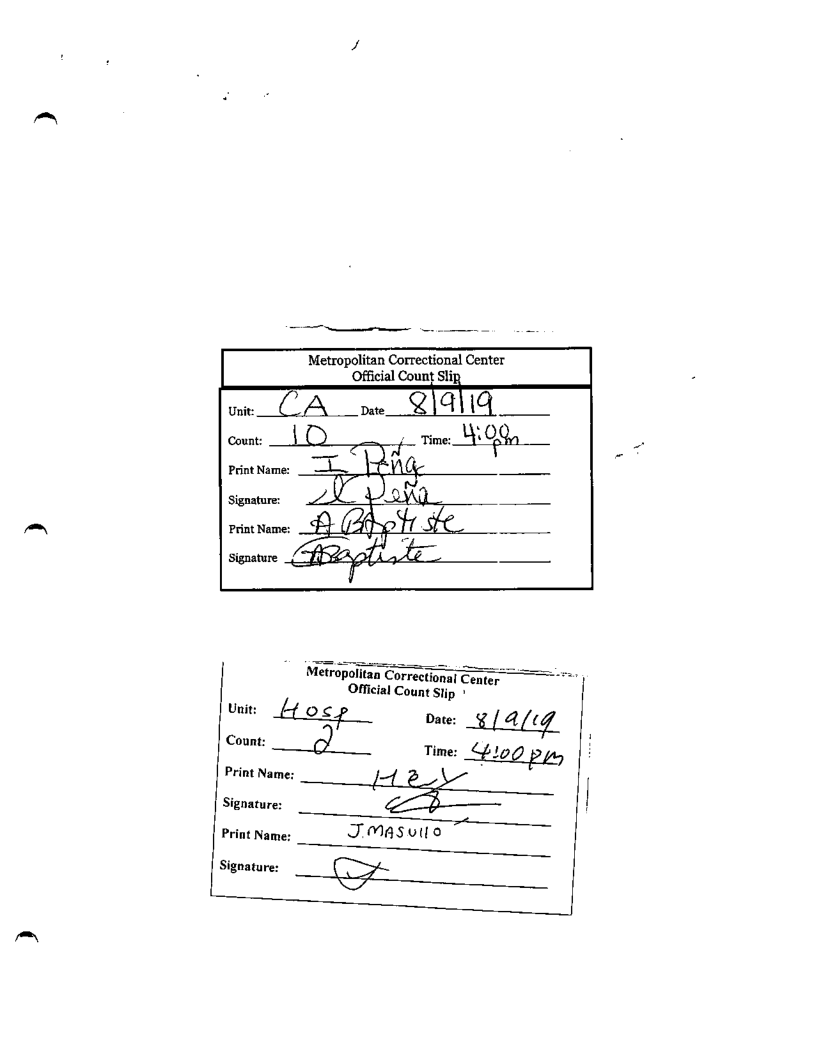 Metropolitan Correctional Center
Official Count Slip
Unit: CA Date 8/9/19
Count: 10 Time: 4:00 pm
Print Name: I Peña
Signature: I Peña
Print Name: A BAptiste
Signature ABaptiste
Metropolitan Correctional Center
Official Count Slip
Unit: Hosp Date: 8/9/19
Count: 2 Time: 4:00 pm
Print Name:
Signature:
Print Name: J. MASUllO
Signature: